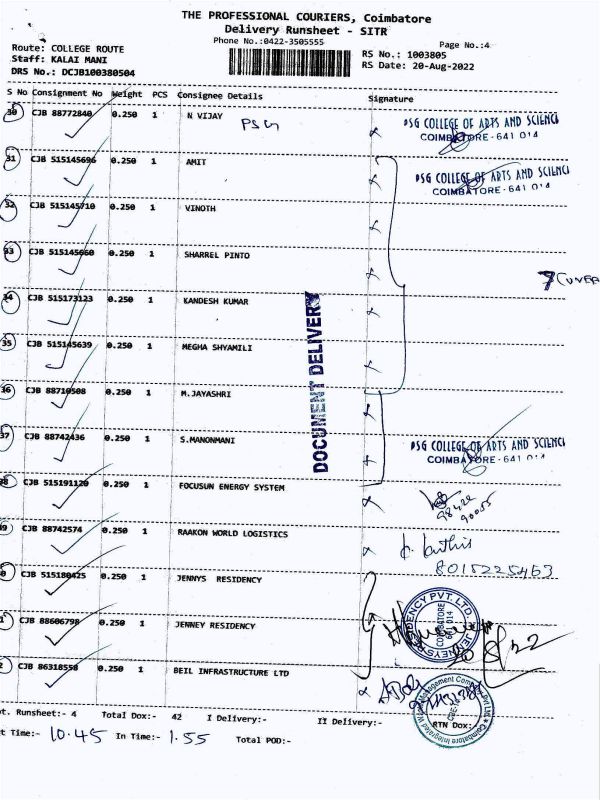 THE PROFESSIONAL COURIERS, Coimbatore
Delivery Runsheet - SITR
Phone No.:0422-3505555
Page No.:4
Route: COLLEGE ROUTE
Staff: KALAI MANI
DRS No.: DCJB100380504
RS No.: 1003805
RS Date: 20-Aug-2022
S No Consignment No Weight PCS Consignee Details Signature
30 CJB 88772840 0.250 1 N VIJAY PSG
PSG COLLEGE OF ARTS AND SCIENCE
COIMBATORE-641 014
31 CJB 515145696 0.250 1 AMIT
PSG COLLEGE OF ARTS AND SCIENCE
COIMBATORE-641 014
32 CJB 515145710 0.250 1 VINOTH
33 CJB 515145660 0.250 1 SHARREL PINTO
7 Cover
34 CJB 515173123 0.250 1 KANDESH KUMAR
35 CJB 515145639 0.250 1 MEGHA SHYAMILI
DOCUMENT DELIVERY
36 CJB 88710508 0.250 1 M.JAYASHRI
37 CJB 88742436 0.250 1 S.MANONMANI
PSG COLLEGE OF ARTS AND SCIENCE
COIMBATORE-641 014
38 CJB 515191120 0.250 1 FOCUSUN ENERGY SYSTEM
98422
90055
39 CJB 88742574 0.250 1 RAAKON WORLD LOGISTICS
8015225463
0 CJB 515180425 0.250 1 JENNYS RESIDENCY
1 CJB 88606798 0.250 1 JENNEY RESIDENCY
COIMBATORE
641 014
20/8/22
2 CJB 86318558 0.250 1 BEIL INFRASTRUCTURE LTD
t. Runsheet:- 4 Total Dox:- 42 I Delivery:- II Delivery:- RTN Dox:
t Time:- 10.45 In Time:- 1.55 Total POD:-